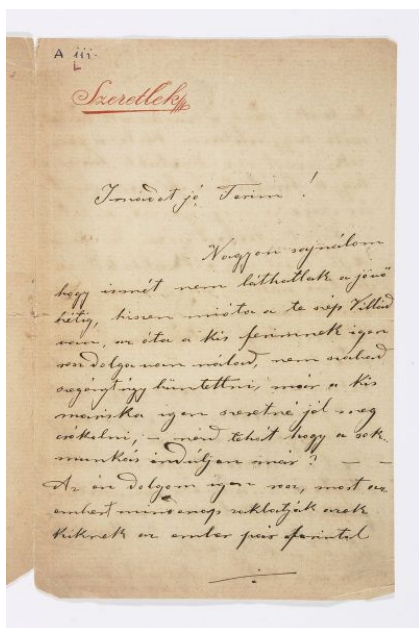 A iii-
Szeretlek
Imádott jó Terim!
Nagyon sajnálom
hogy ismét nem láthatlak a jövő
hétig, hiszen mióta a te szép Villád
van, az óta a kis ferimnek igen
rosz dolga van nálad, nem szabad
szegényt így büntettni, már a kis
mariska igen szeretné jól meg
csókolni, – nézd tehát hogy a sok
munkás induljon már? – –
Az én dolgom igen rosz, most az
embert mindennap zaklatják azok
kiknek az ember pár forinttal